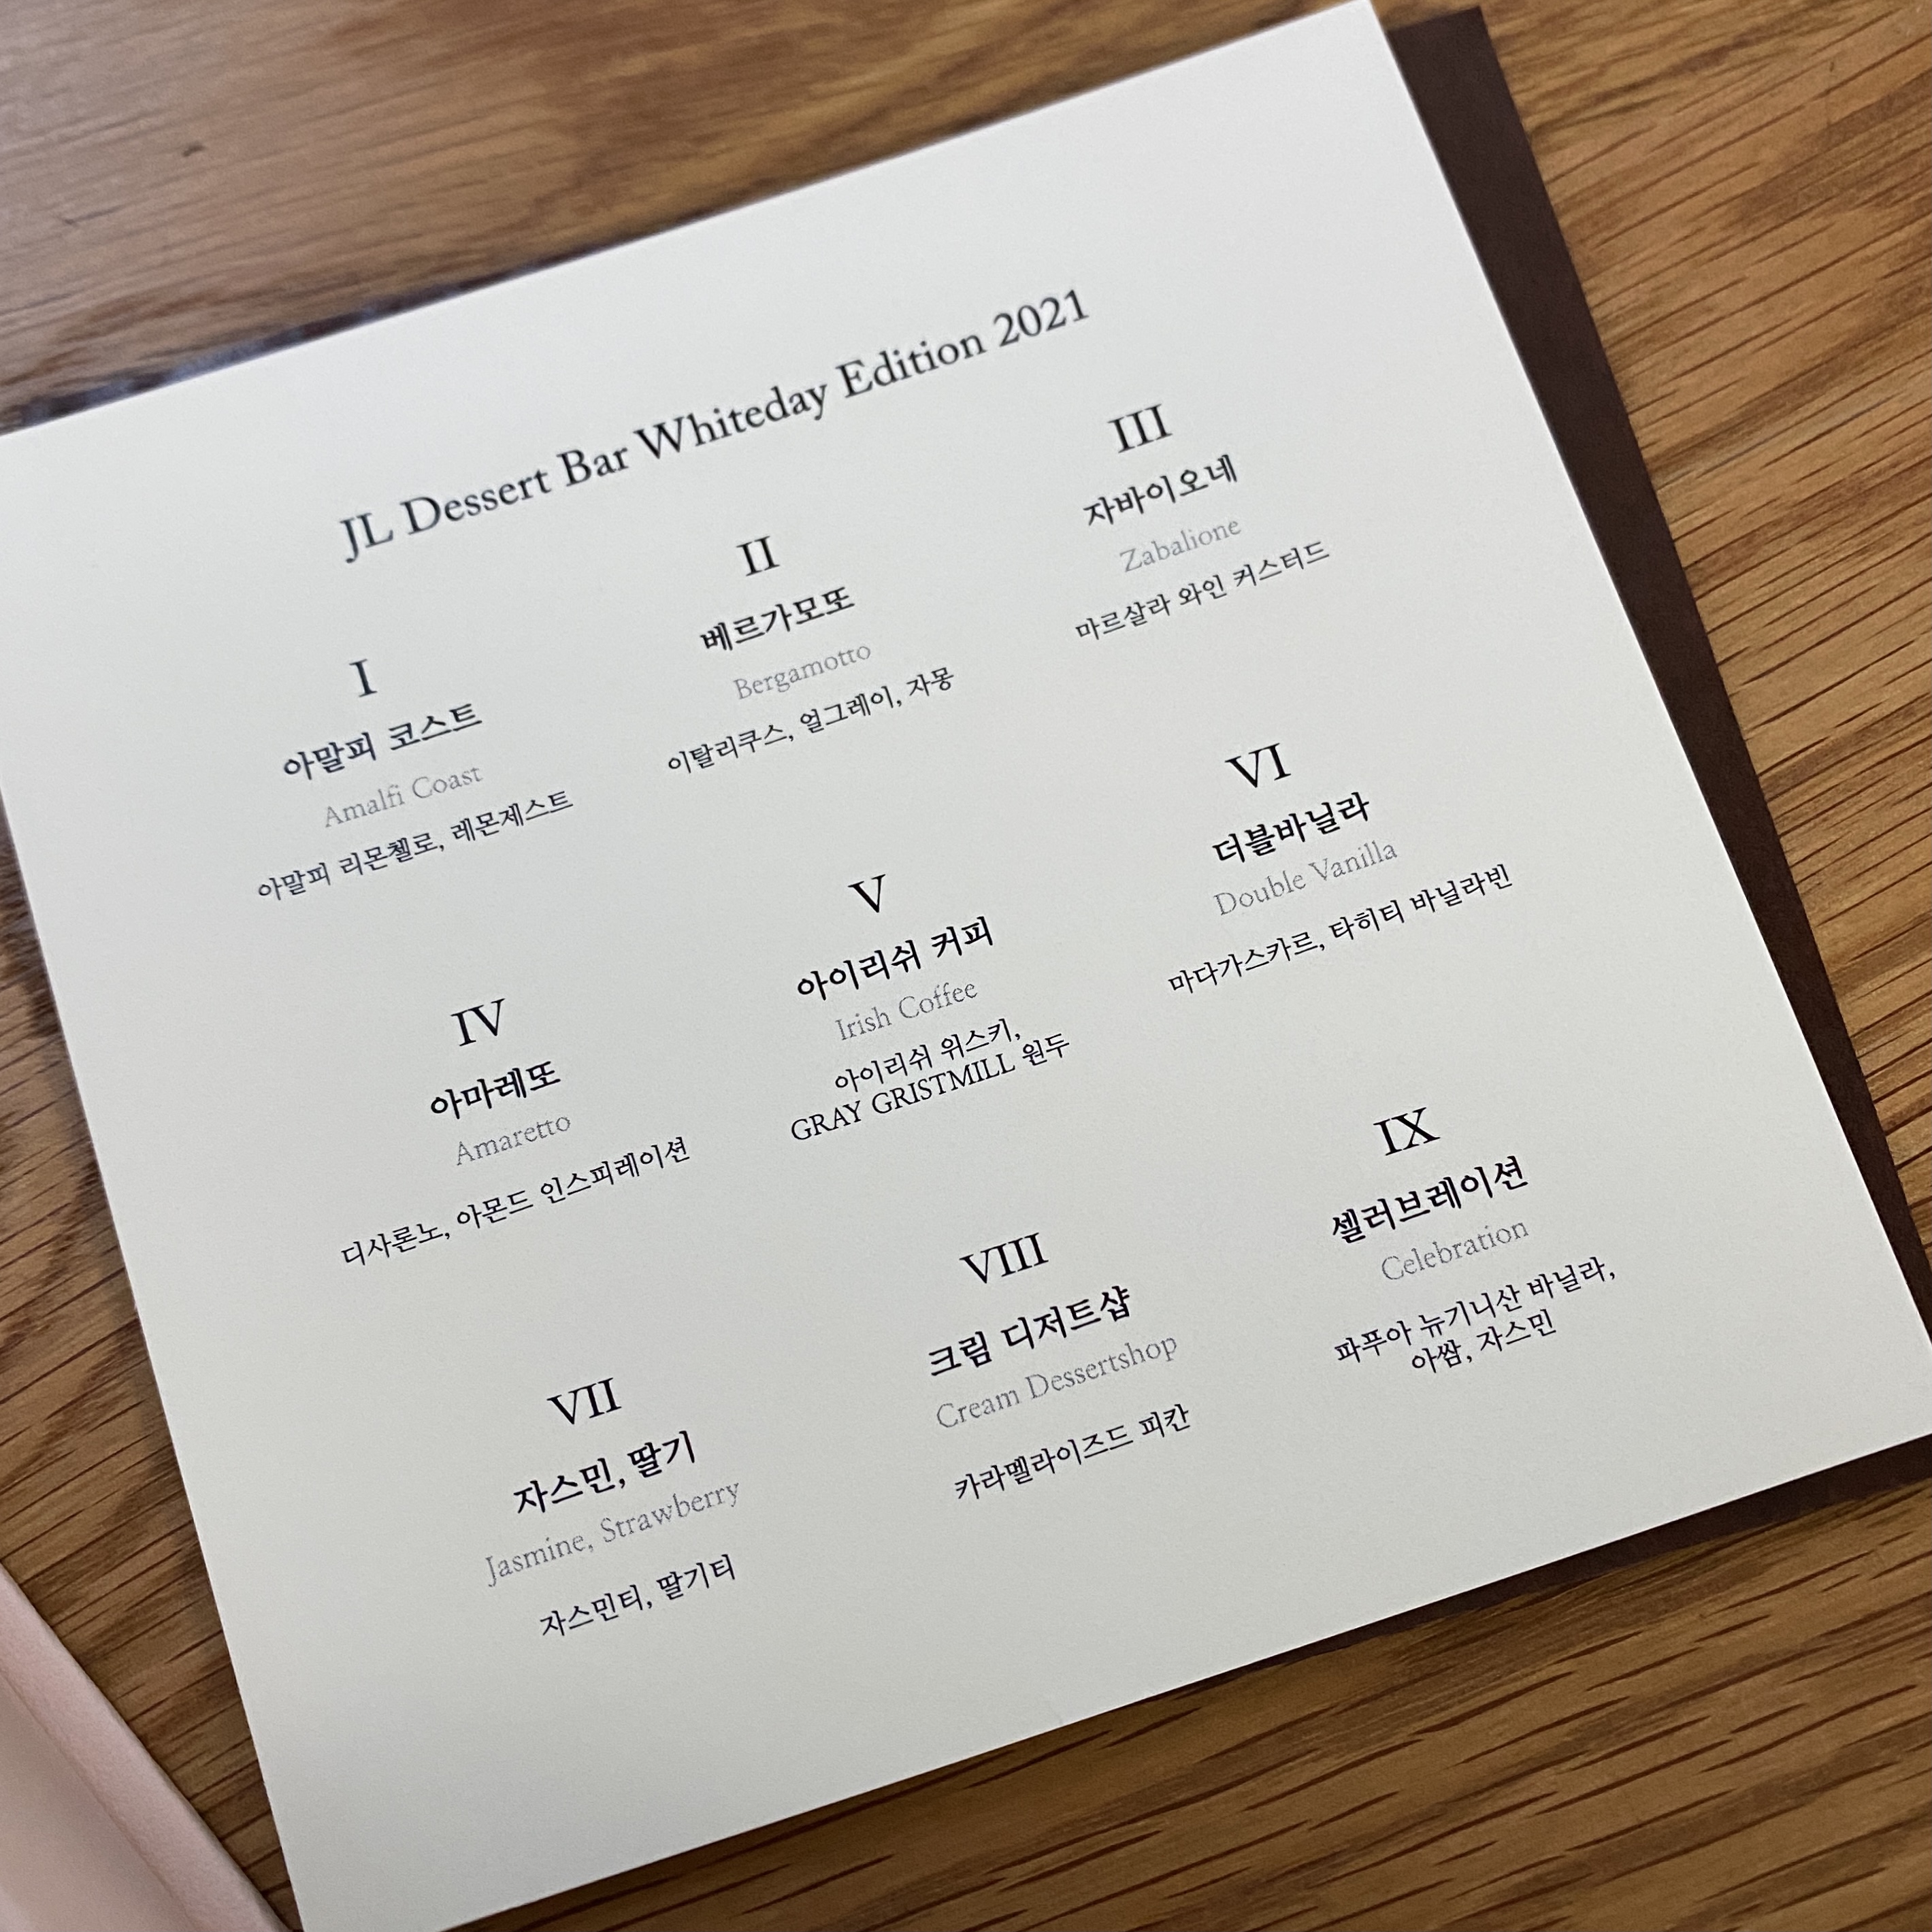 JL Dessert Bar Whiteday Edition 2021
I
아말피 코스트
Amalfi Coast
아말피 리몬첼로, 레몬제스트
II
베르가모또
Bergamotto
이탈리쿠스, 얼그레이, 자몽
III
자바이오네
Zabalione
마르살라 와인 커스터드
IV
아마레또
Amaretto
디사론노, 아몬드 인스피레이션
V
아이리쉬 커피
Irish Coffee
아이리쉬 위스키,
GRAY GRISTMILL 원두
VI
더블바닐라
Double Vanilla
마다가스카르, 타히티 바닐라빈
VII
자스민, 딸기
Jasmine, Strawberry
자스민티, 딸기티
VIII
크림 디저트샵
Cream Dessertshop
카라멜라이즈드 피칸
IX
셀러브레이션
Celebration
파푸아 뉴기니산 바닐라,
아쌈, 자스민